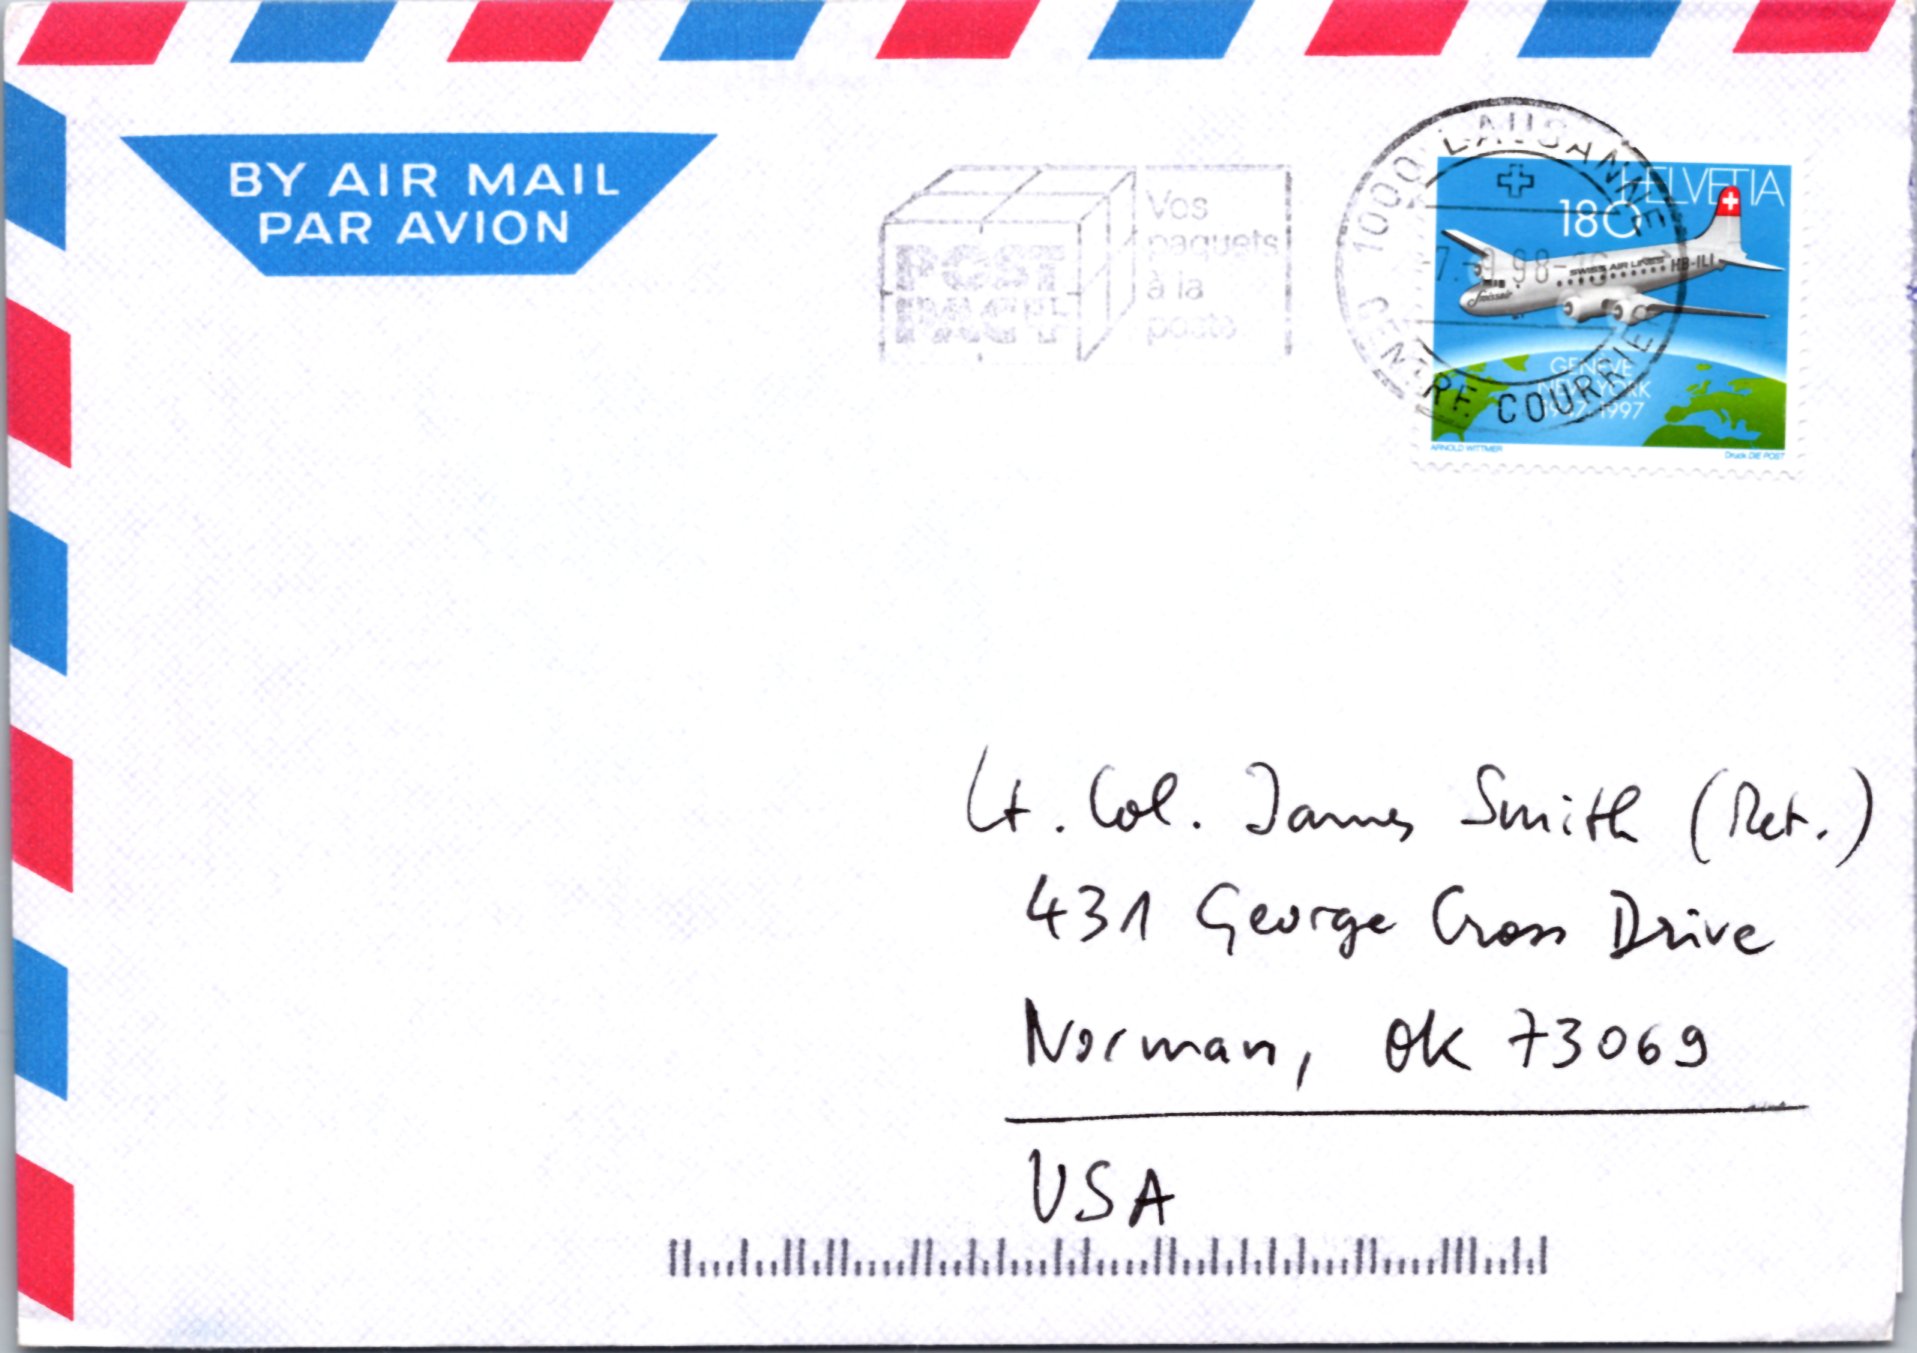 BY AIR MAIL
PAR AVION
POST
PAC
Vos
paquets
à la
poste
1000 LAUSANNE
98-16
CENTRE COURRIER
HELVETIA
180
SWISS AIR LINES HB-ILI
Swissair
GENÈVE
NEW YORK
1947-1997
ARNOLD WITTMER
Druck DIE POST
Lt. Col. James Smith (Ret.)
431 George Cross Drive
Norman, OK 73069
USA